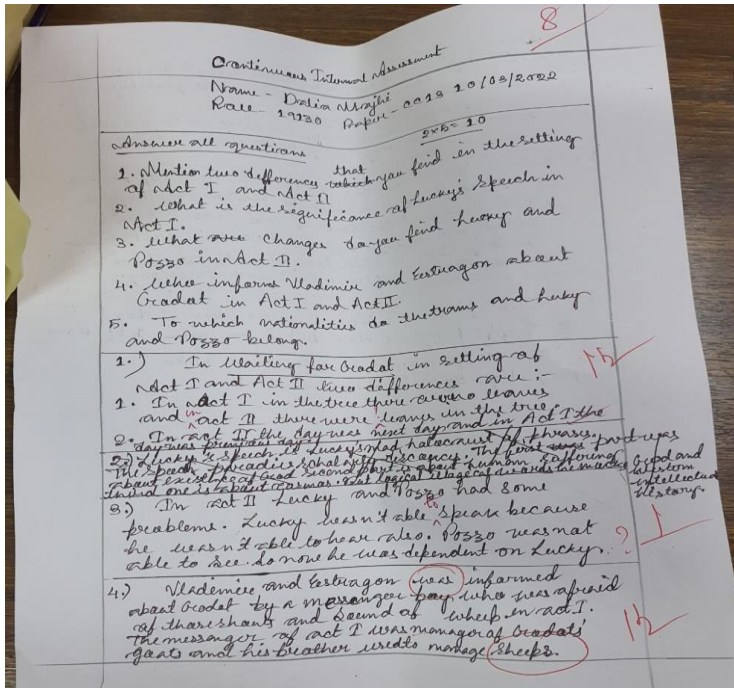 8
Continuous Internal Assessment
Name - Dalia Majhi
Roll - 19130 Paper - CC13 10/03/2022
2x5=10
Answer all questions
1. Mention two differences that which you find in the setting
of Act I and Act II
2. What is the significance of Lucky's speech in
Act I.
3. What are changes do you find Lucky and
Pozzo in Act II.
4. Who informs Vladimir and Estragon about
Godot in Act I and Act II.
5. To which nationalities do the trams and Lucky
and Pozzo belong.
1.) In Waiting for Godot in setting of
Act I and Act II two differences are :-
1. In Act I in the tree there were no leaves
and in act II there were leaves in the tree.
2. In act II the day was next day and in Act I the
day was previous day.
2) Lucky's speech is Lucky's mad holocaust of phrases.
The speech scholarly The first part was
about existence of God second part is about human suffering
third one is about
God and
intellectual
history.
3.) In act II Lucky and Pozzo had some
problems. Lucky wasn't able to speak because
he wasn't able to hear also. Pozzo was not
able to see. So now he was dependent on Lucky. ?
1
4.) Vladimir and Estragon was informed
about Godot by a messenger boy who was afraid
of shouts and sound of wheep in act I.
The messanger of act I was manager of Godots'
goats and his brother used to manage sheeps.